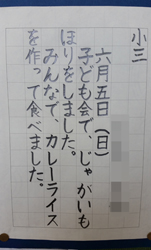 小三
六月五日(日)
子ども会で、じゃがいも
ほりをしました。
みんなで、カレーライス
を作って食べました。